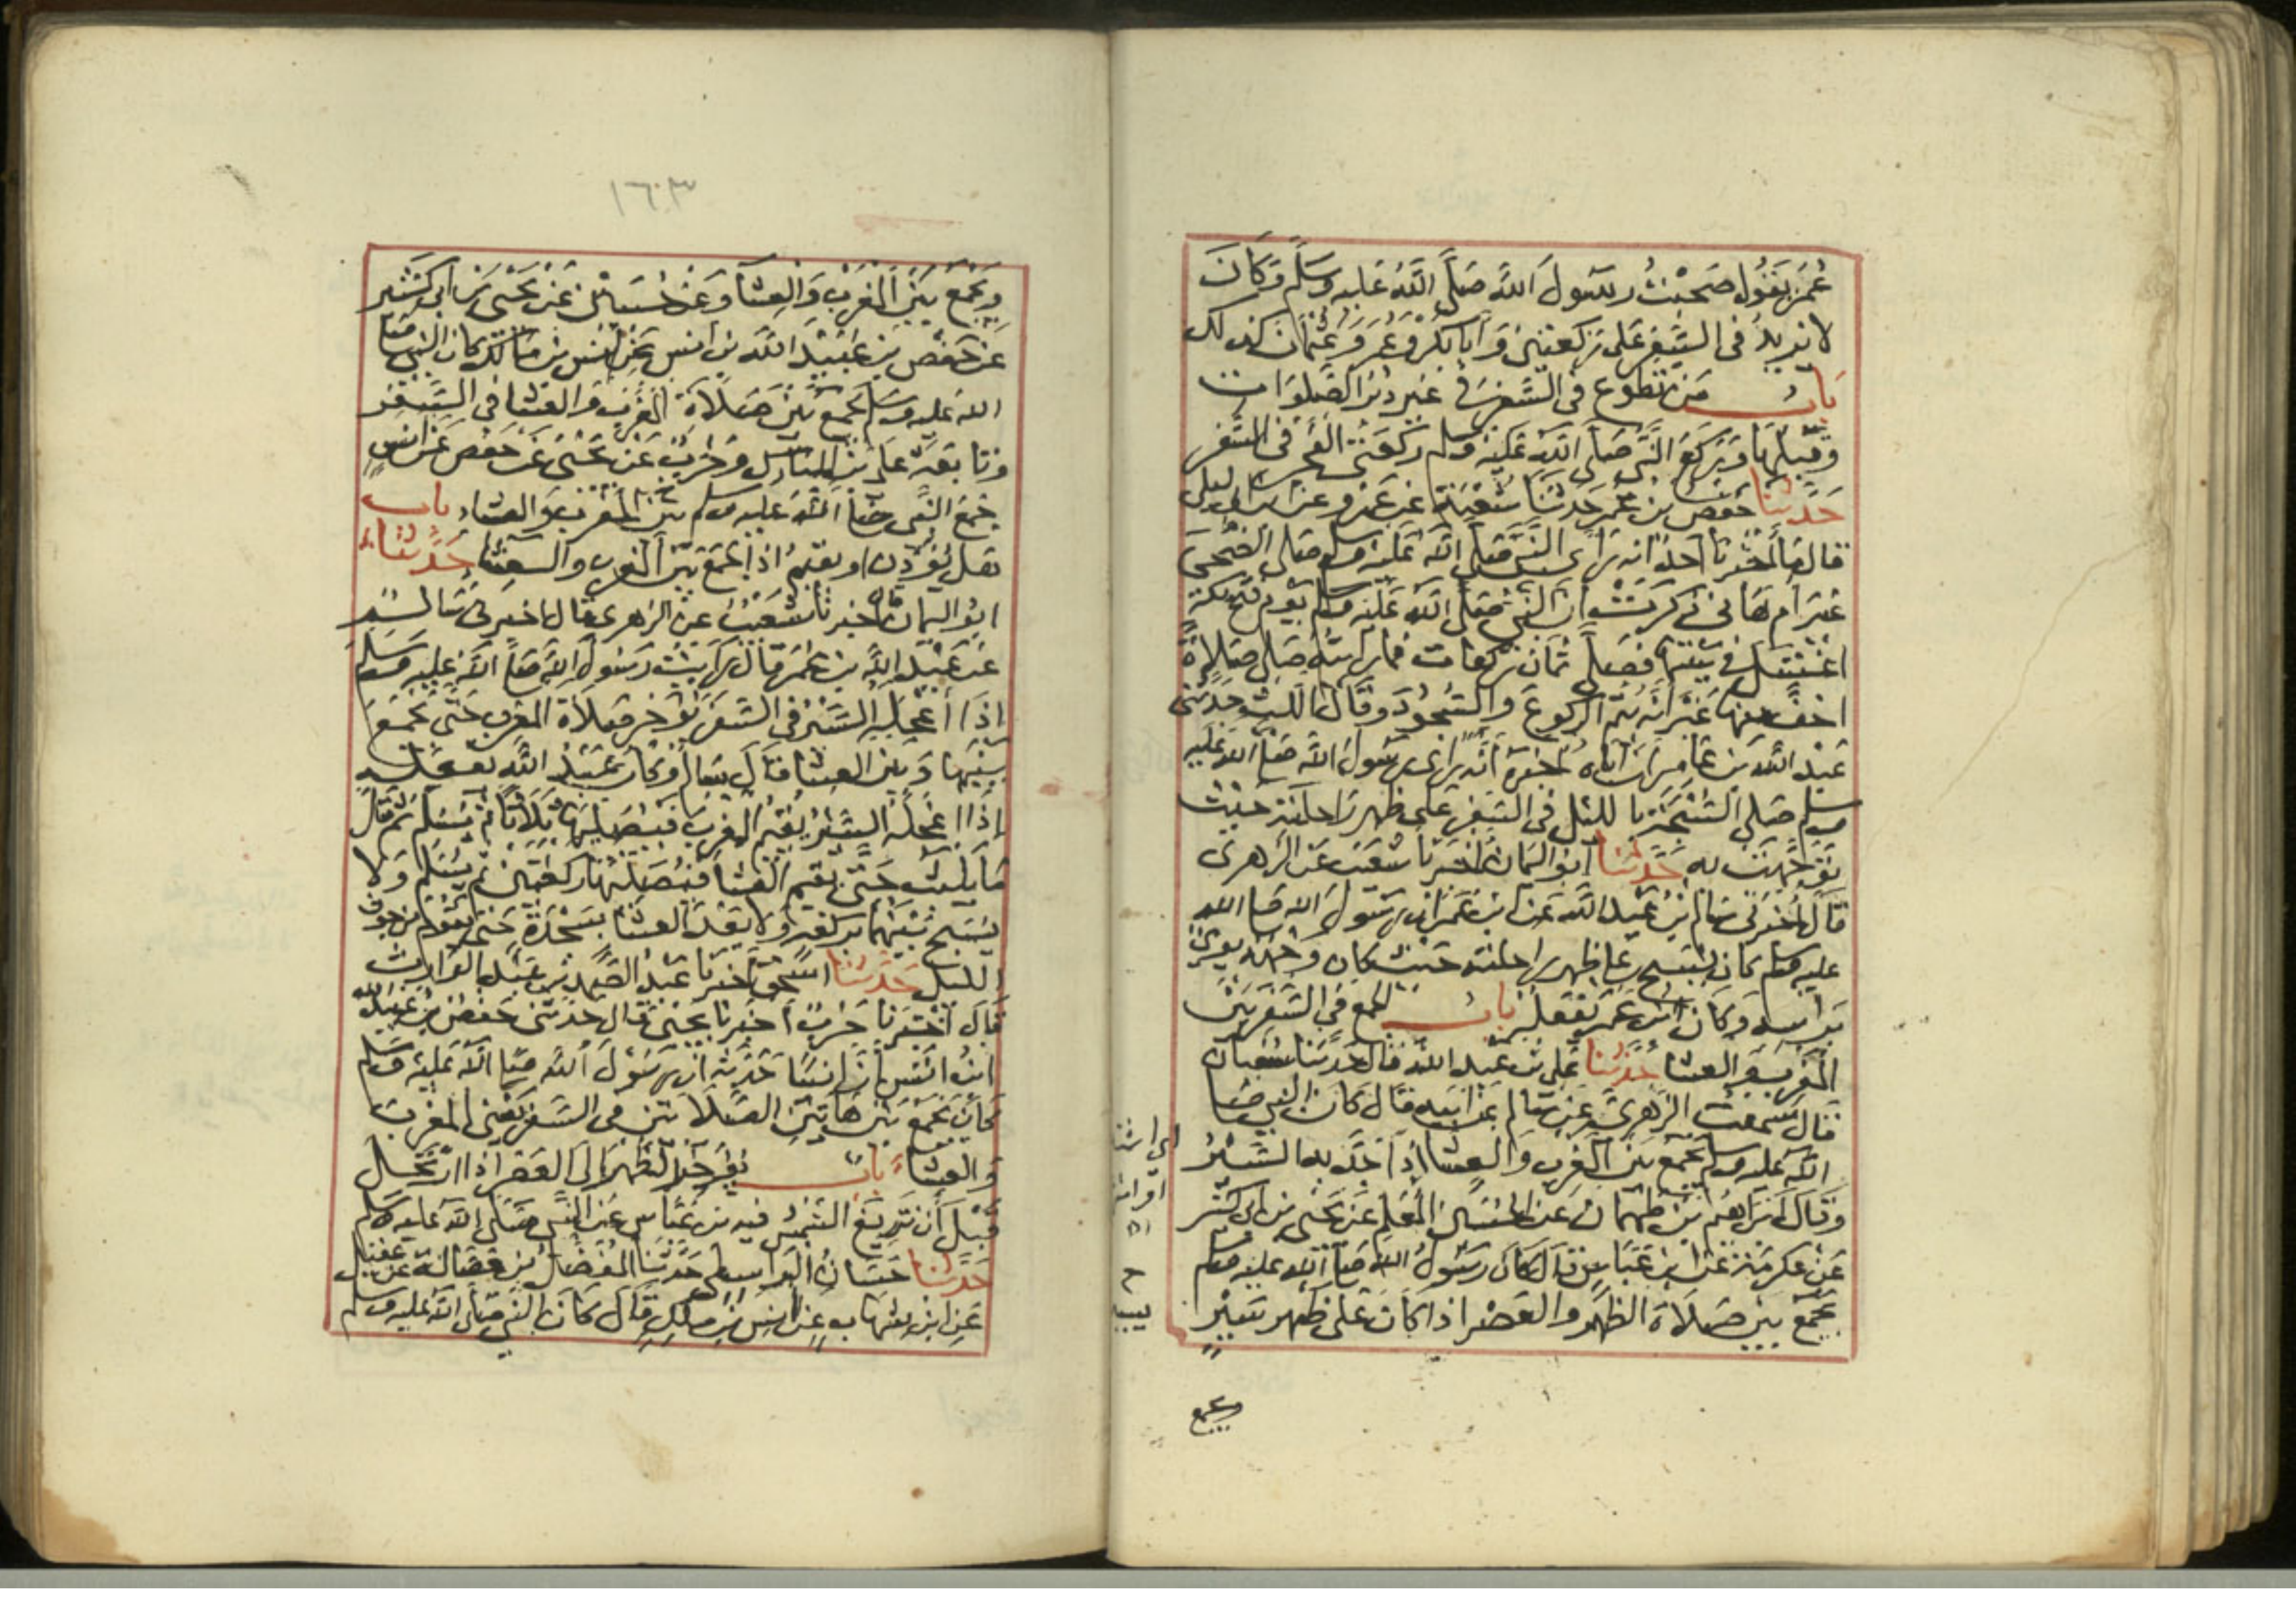 عُمَرَ يَقُولُ صَحِبْتُ رسُولَ اللَّه صَلَّى اللَّهُ عَليه وسَلَّم وَكَانَ
لا يزيدُ في السَّفر على ركعتين وَأَبا بكر وَعُمَر وَعُثمان كذلك
بابُ من تطوع في السَّفر في غير دبر الصَّلوات
وقبلها وَرَكَعَ النَّبي صَلى اللَّه عَليه وسلم رَكعَتي الفجر في السَّفر
حَدَّثنا حَفص بن عُمر حَدثنَا شعبَة عَن عَمرو عن ابن ابي ليلى
قال ما اخبرنا احد انه رَاى النَّبي صَلى الله عَليه وسلم صلى الضُّحَى
غير ام هَاني ذكرت ان النَّبي صَلى الله عَليه وسلم يوم فتح مكة
اغتسَل في بَيتها فصَلى ثمان ركعات فما رايته صَلى صَلاة
اخفَّ منها غَير انَّه يتم الركوعَ والسُّجودَ وقال الليث حدثني
عَبد اللَّه بن عَامر ان اباه اخبره انَّه رَاى رسُول اللَّه صَلى الله عَليه
وسلم صَلى السُّبحة بالليل في السَّفر على ظهر رَاحلته حيث
توجهَت به حَدَّثنا ابو اليمان اخبرنا شعَيب عَن الزهرى
قال أخبرني سَالم بن عَبد اللَّه عن ابن عُمَر ان رسُول الله صَلى الله
عليه وسلم كان يُسَبح على ظهر راحلته حَيث كان وجهه يومئ
براسه وكان ابن عُمر يفعَله بابُ الجمع في السَّفر بَين
المغرب والعشا حَدَّثنا على بن عبد الله قال حَدثنا سُفيان
قال سَمعت الزهري عن سَالم عن ابيه قال كان النبي صَلى
الله عليه وسلم يجمع بَين المغرب والعشا إذا جَدَّ به السَّيرُ
وقال ابرَاهيم بن طهمَان عَن الحُسَين المعَلم عَن يحيى بن ابي كثير
عَن عكرمة عَن ابن عَباسٍ قال كان رسُول الله صَلى الله عليه وسلم
يجمع بين صَلاة الظهر والعَصر اذا كانَ على ظهر سَيرٍ
ويجمع
١٦٠٣
ويَجمَع بَينَ المغرب والعِشا وعَن حُسَين عَن يحيى بن ابي كثير
عَن حَفص بن عُبَيد اللَّه بن انس عَن انس بن مَالك كان النبي صَلى
الله عليه وسلم يجمع بين صَلاة المغرب والعشا في السَّفر
وتابعَه على بن المبارك وحَرب عَن يحيى عَن حَفص عَن انسٍ
جَمَع النَّبي صَلى الله عَليه وسلم بَين المغرب والعشاء باب
هَل يُؤذن او يقيم اذا جَمعَ بَين المغرب والعشاء حَدَّثنا
ابو اليمان قال اخبرنا شعَيب عن الزهري قال اخبرني سَالم
عَن عَبد الله بن عُمَر قال رَايت رسُول الله صَلى الله عليه وسلم
إذا أعجله السَّير في السَّفر يؤخر صَلاة المغرب حَتى يجمَع
بينَها وَبَين العِشا قال سَالم وكان عَبد الله يفعَله
إذا اعجله السَّيرُ يقيم المغربَ فيصَليها ثلاثا ثم يُسَلم ثم قل ما
يلبث حَتى يقيم العشا فيُصَليها ركعتين ثم يُسَلم ولا
يُسَبح بَينهما بركعَة ولا بعد العشا بسَجدَة حَتى يقوم من جوف
الليل حَدَّثنا اسحق اخبرنا عَبد الصَّمد بن عَبد الوارث
قال اخبرنا حَرب اخبرنا يحيى قال حَدثني حَفص بن عبيد الله
ابن انس ان انسًا حَدثه ان رسُول الله صَلى الله عَليه وسلم
كانَ يجمعُ بين هَاتين الصَّلاتين في السَّفر يعني المغربَ
والعشاءَ باب يؤخر الظهر الى العَصر اذا ارتحَل
قبلَ أن تزيغ الشمسُ فيه ابن عَباس عَن النَّبي صَلى الله عليه وسلم
حَدثنا حَسَان الواسطي حَدثنا المفضَّل بن فضالة عن عقيل
عَن ابن شهاب عن انس بن مالك قال كان النَّبي صَلى الله عليه وسلم